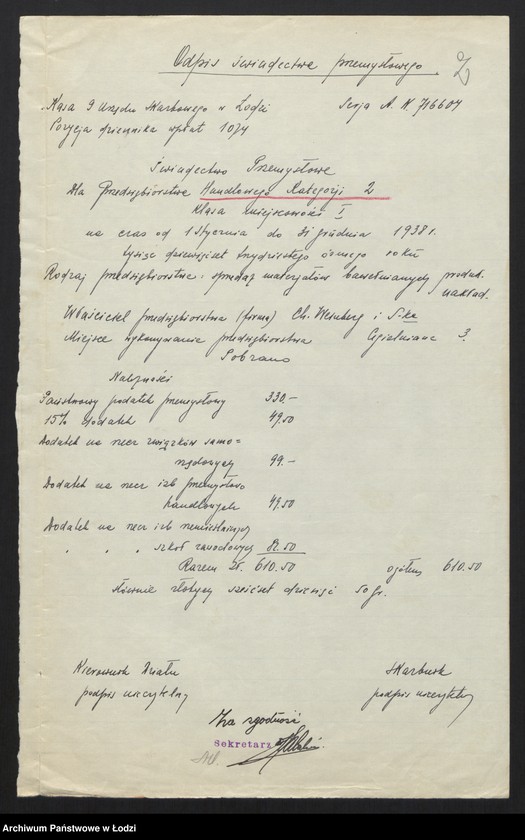 Odpis świadectwa przemysłowego. 2
Kasa 9 Urzędu Skarbowego w Łodzi Serja A. N 716604
Pozycja dziennika wpłat 1074
Świadectwo Przemysłowe
Dla Przedsiębiorstwa Handlowego Kategorji 2
Klasa miejscowości I
na czas od 1 Stycznia do 31 grudnia 1938 r.
tysiąc dziewięćset trzydziestego ósmego roku
Rodzaj przedsiębiorstwa: sprzedaż materjałów bawełnianych produk.
nakład.
Właściciel przedsiębiorstwa (firma) Ch. Weinberg i S-ka
Miejsce wykonywania przedsiębiorstwa Cegielniana 3.
Pobrano
Należności
Państwowy podatek przemysłowy 330.-
15% dodatek 49.50
Dodatek na rzecz związków samo=
rządowych 99.-
Dodatek na rzecz izb przemysłowo
handlowych 49.50
Dodatek na rzecz izb rzemieślniczych
" " " szkół zawodowych 82.50
Razem Zł. 610.50 ogółem 610.50
słownie złotych sześćset dziesięć 50 gr.
Kierownik Działu Skarbnik
podpis nieczytelny podpis nieczytelny
Za zgodność
Sekretarz
Archiwum Państwowe w Łodzi